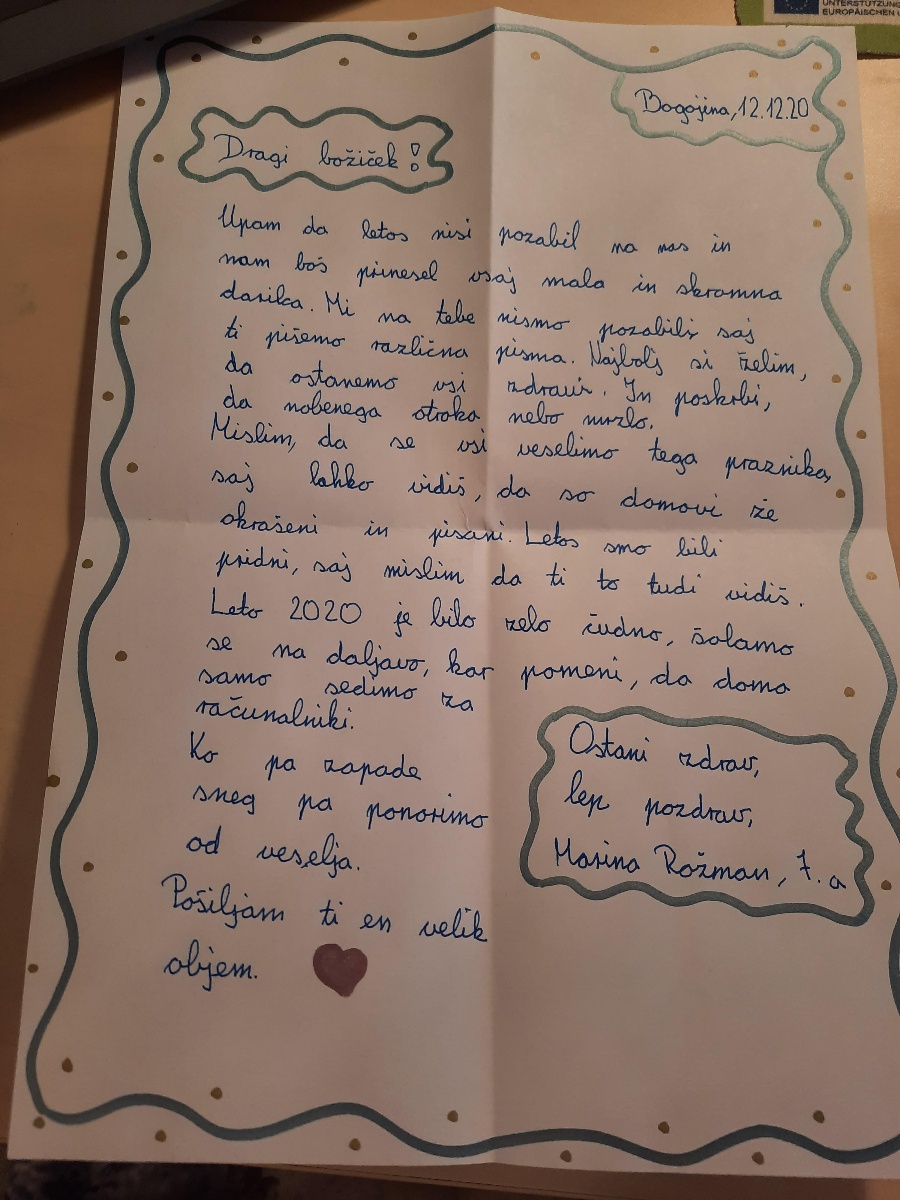 UNTERSTÜTZUNG
EUROPÄISCHEN
Bogojina, 12.12.20
Dragi božiček!
Upam da letos nisi pozabil na nas in
nam boš prinesel vsaj mala in skromna
darila. Mi na tebe nismo pozabili, saj
ti pišemo različna pisma. Najbolj si želim,
da ostanemo vsi zdravi. In poskrbi,
da nobenega otroka nebo mrzlo.
Mislim, da se vsi veselimo tega praznika,
saj lahko vidiš, da so domovi že
okrašeni in pisani. Letos smo bili
pridni, saj mislim da ti to tudi vidiš.
Leto 2020 je bilo zelo čudno, šolamo
se na daljavo, kar pomeni, da doma
samo sedimo za
računalniki.
Ko pa zapade
sneg pa ponorimo
od veselja.
Pošiljam ti en velik
objem.
Ostani zdrav,
lep pozdrav,
Marina Rožman, 7. a